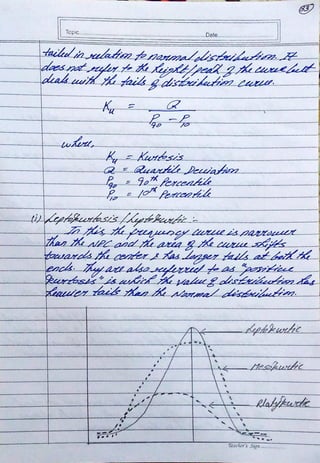 23
Topic
Date
tailed in relation to normal distribution. It
does not refer to the height/peak of the curve but
deals with the tails of distribution curve.
Ku = Q
P90 - P10
where,
Ku = Kurtosis
Q = Quartile Deviation
P90 = 90th Percentile
P10 = 10th Percentile
(i) Leptokurtosis / Leptokurtic :-
In this, the frequency curve is narrower
than the NPC and the area of the curve shifts
towards the center & has longer tails at both the
ends. They are also referred to as "positive
kurtosis" in which the value of distribution has
heavier tails than the Normal distribution.
Leptokurtic
Mesokurtic
Platykurtic
Teacher's Sign